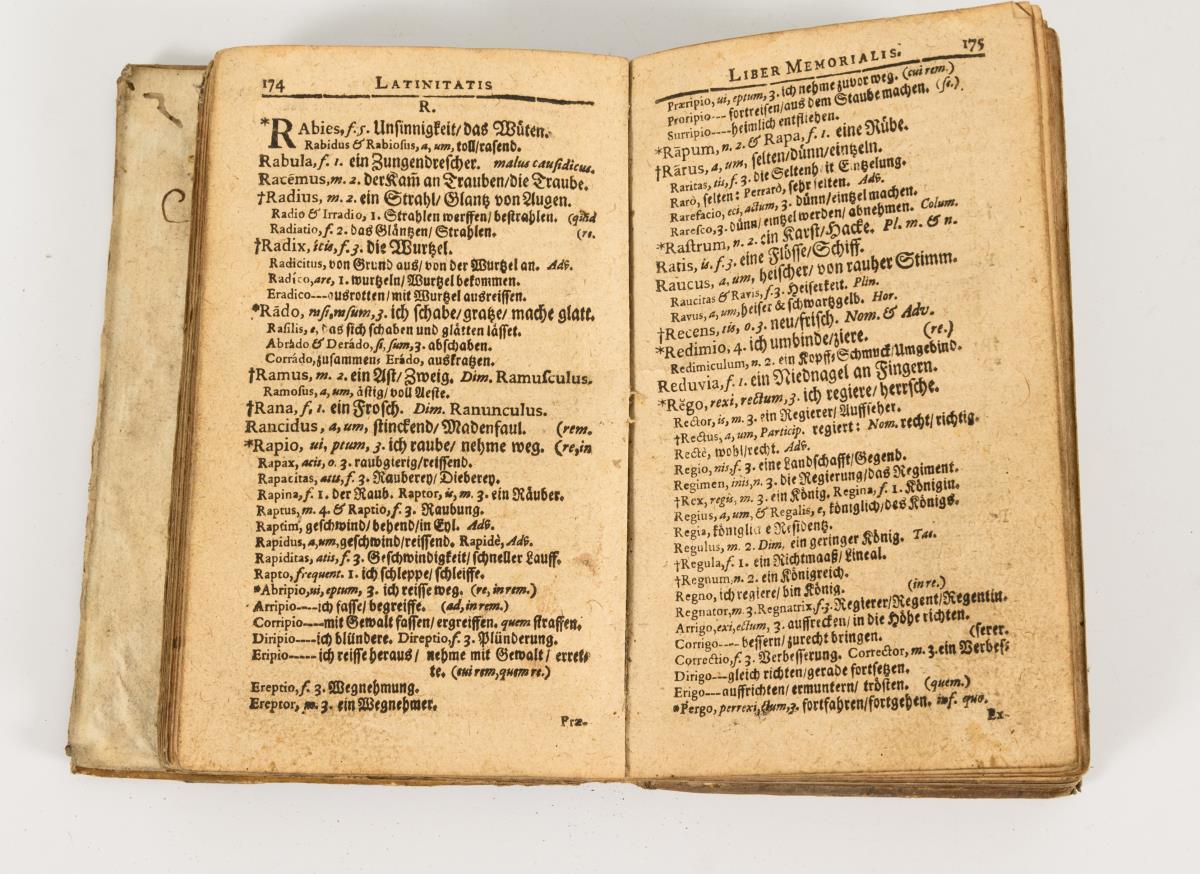 174 LATINITATIS
R.
*RAbies, f. 5. Unsinnigkeit/ das Wüten.
Rabidus & Rabiosus, a, um, toll/ rasend.
Rabula, f. 1. ein Zungendrescher. malus causidicus.
Racēmus, m. 2. der Kam̄ an Trauben/ die Traube.
†Radius, m. 2. ein Strahl/ Glantz von Augen.
Radio & Irradio, 1. Strahlen werffen/ bestrahlen. (quid
Radiatio, f. 2. das Gläntzen/ Strahlen. (re.
†Radix, icis, f. 3. die Wurtzel.
Radicitus, von Grund aus/ von der Wurtzel an. Adv.
Radíco, are, 1. wurtzeln/ Wurtzel bekommen.
Eradico---ausrotten/ mit Wurtzel ausreissen.
*Rādo, rasi, rasum, 3. ich schabe/ gratze/ mache glatt.
Rasilis, e, das sich schaben und glätten lässet.
Abrádo & Derádo, si, sum, 3. abschaben.
Corrádo, zusammen: Erádo, auskratzen.
†Ramus, m. 2. ein Ast/ Zweig. Dim. Ramusculus.
Ramosus, a, um, ästig/ voll Aeste.
†Rana, f. 1. ein Frosch. Dim. Ranunculus.
Rancidus, a, um, stinckend/ Madenfaul. (rem.
*Rapio, ui, ptum, 3. ich raube/ nehme weg. (re, in
Rapax, acis, o. 3. raubgierig/ reissend.
Rapacitas, atis, f. 3. Rauberey/ Dieberey.
Rapina, f. 1. der Raub. Raptor, is, m. 3. ein Räuber.
Raptus, m. 4. & Raptio, f. 3. Raubung.
Raptim, geschwind/ behend/ in Eyl. Adv.
Rapidus, a, um, geschwind/ reissend. Rapidè, Adv.
Rapiditas, atis, f. 3. Geschwindigkeit/ schneller Lauff.
Rapto, frequent. 1. ich schleppe/ schleiffe.
*Abripio, ui, eptum, 3. ich reisse weg. (re, in rem.)
Arripio---ich fasse/ begreiffe. (ad, in rem.)
Corripio---mit Gewalt fassen/ ergreiffen. quem straffen.
Diripio---ich blündere. Direptio, f. 3. Plünderung.
Eripio----ich reisse heraus/ nehme mit Gewalt/ erret-
te. (cui rem, quem re.)
Ereptio, f. 3. Wegnehmung.
Ereptor, m. 3. ein Wegnehmer.
Præ-
LIBER MEMORIALIS. 175
Præripio, ui, eptum, 3. ich nehme zuvor weg. (cui rem.)
Proripio---fortreisen/ aus dem Staube machen. (se.)
Surripio----heimlich entfliehen.
*Rāpum, n. 2. & Rapa, f. 1. eine Rübe.
†Rārus, a, um, selten/ dünn/ eintzeln.
Raritas, tis, f. 3. die Seltenheit Entzelung.
Rarò, selten: Perrarò, sehr selten. Adv.
Rarefacio, eci, actum, 3. dünn/ eintzel machen.
Raresco, 3. dünn/ eintzel werden/ abnehmen. Colum.
*Rastrum, n. 2. ein Karst/ Hacke. Pl. m. & n.
Ratis, is. f. 3. eine Flösse/ Schiff.
Raucus, a, um, heischer/ von rauher Stimm.
Raucitas & Ravis, f. 3. Heiserkeit. Plin.
Ravus, a, um, heiser & schwartzgelb. Hor.
†Recens, tis, o. 3. neu/ frisch. Nom. & Adv.
*Redimio, 4. ich umbinde/ ziere. (re.)
Redimiculum, n. 2. ein Kopff-Schmuck/ Umgebind.
Reduvia, f. 1. ein Niednagel an Fingern.
*Rĕgo, rexi, rectum, 3. ich regiere/ herrsche.
Rector, is, m. 3. ein Regierer/ Auffseher.
†Rectus, a, um, Particip. regiert: Nom. recht/ richtig.
Rectè, wohl/ recht. Adv.
Regio, nis, f. 3. eine Landschafft/ Gegend.
Regimen, inis, n. 3. die Regierung/ das Regiment.
†Rex, regis, m. 3. ein König. Regina, f. 1. Königin.
Regius, a, um, & Regalis, e, königlich/ des Königs.
Regia, königliche Residentz.
Regulus, m. 2. Dim. ein geringer König. Tac.
†Regula, f. 1. ein Richtmaaß/ Lineal.
†Regnum, n. 2. ein Königreich.
Regno, ich regiere/ bin König. (in re.)
Regnator, m. 3. Regnatrix, f. 3. Regierer/ Regent/ Regentin.
Arrigo, exi, ectum, 3. auffrecken/ in die Höhe richten.
Corrigo----bessern/ zurecht bringen. (serer.
Correctio, f. 3. Verbesserung. Corrector, m. 3. ein Verbes-
Dirigo---gleich richten/ gerade fortsetzen.
Erigo---auffrichten/ ermuntern/ trösten. (quem.)
*Pergo, perrexi, ctum, 3. fortfahren/ fortgehen. inf. quo.
Ex-